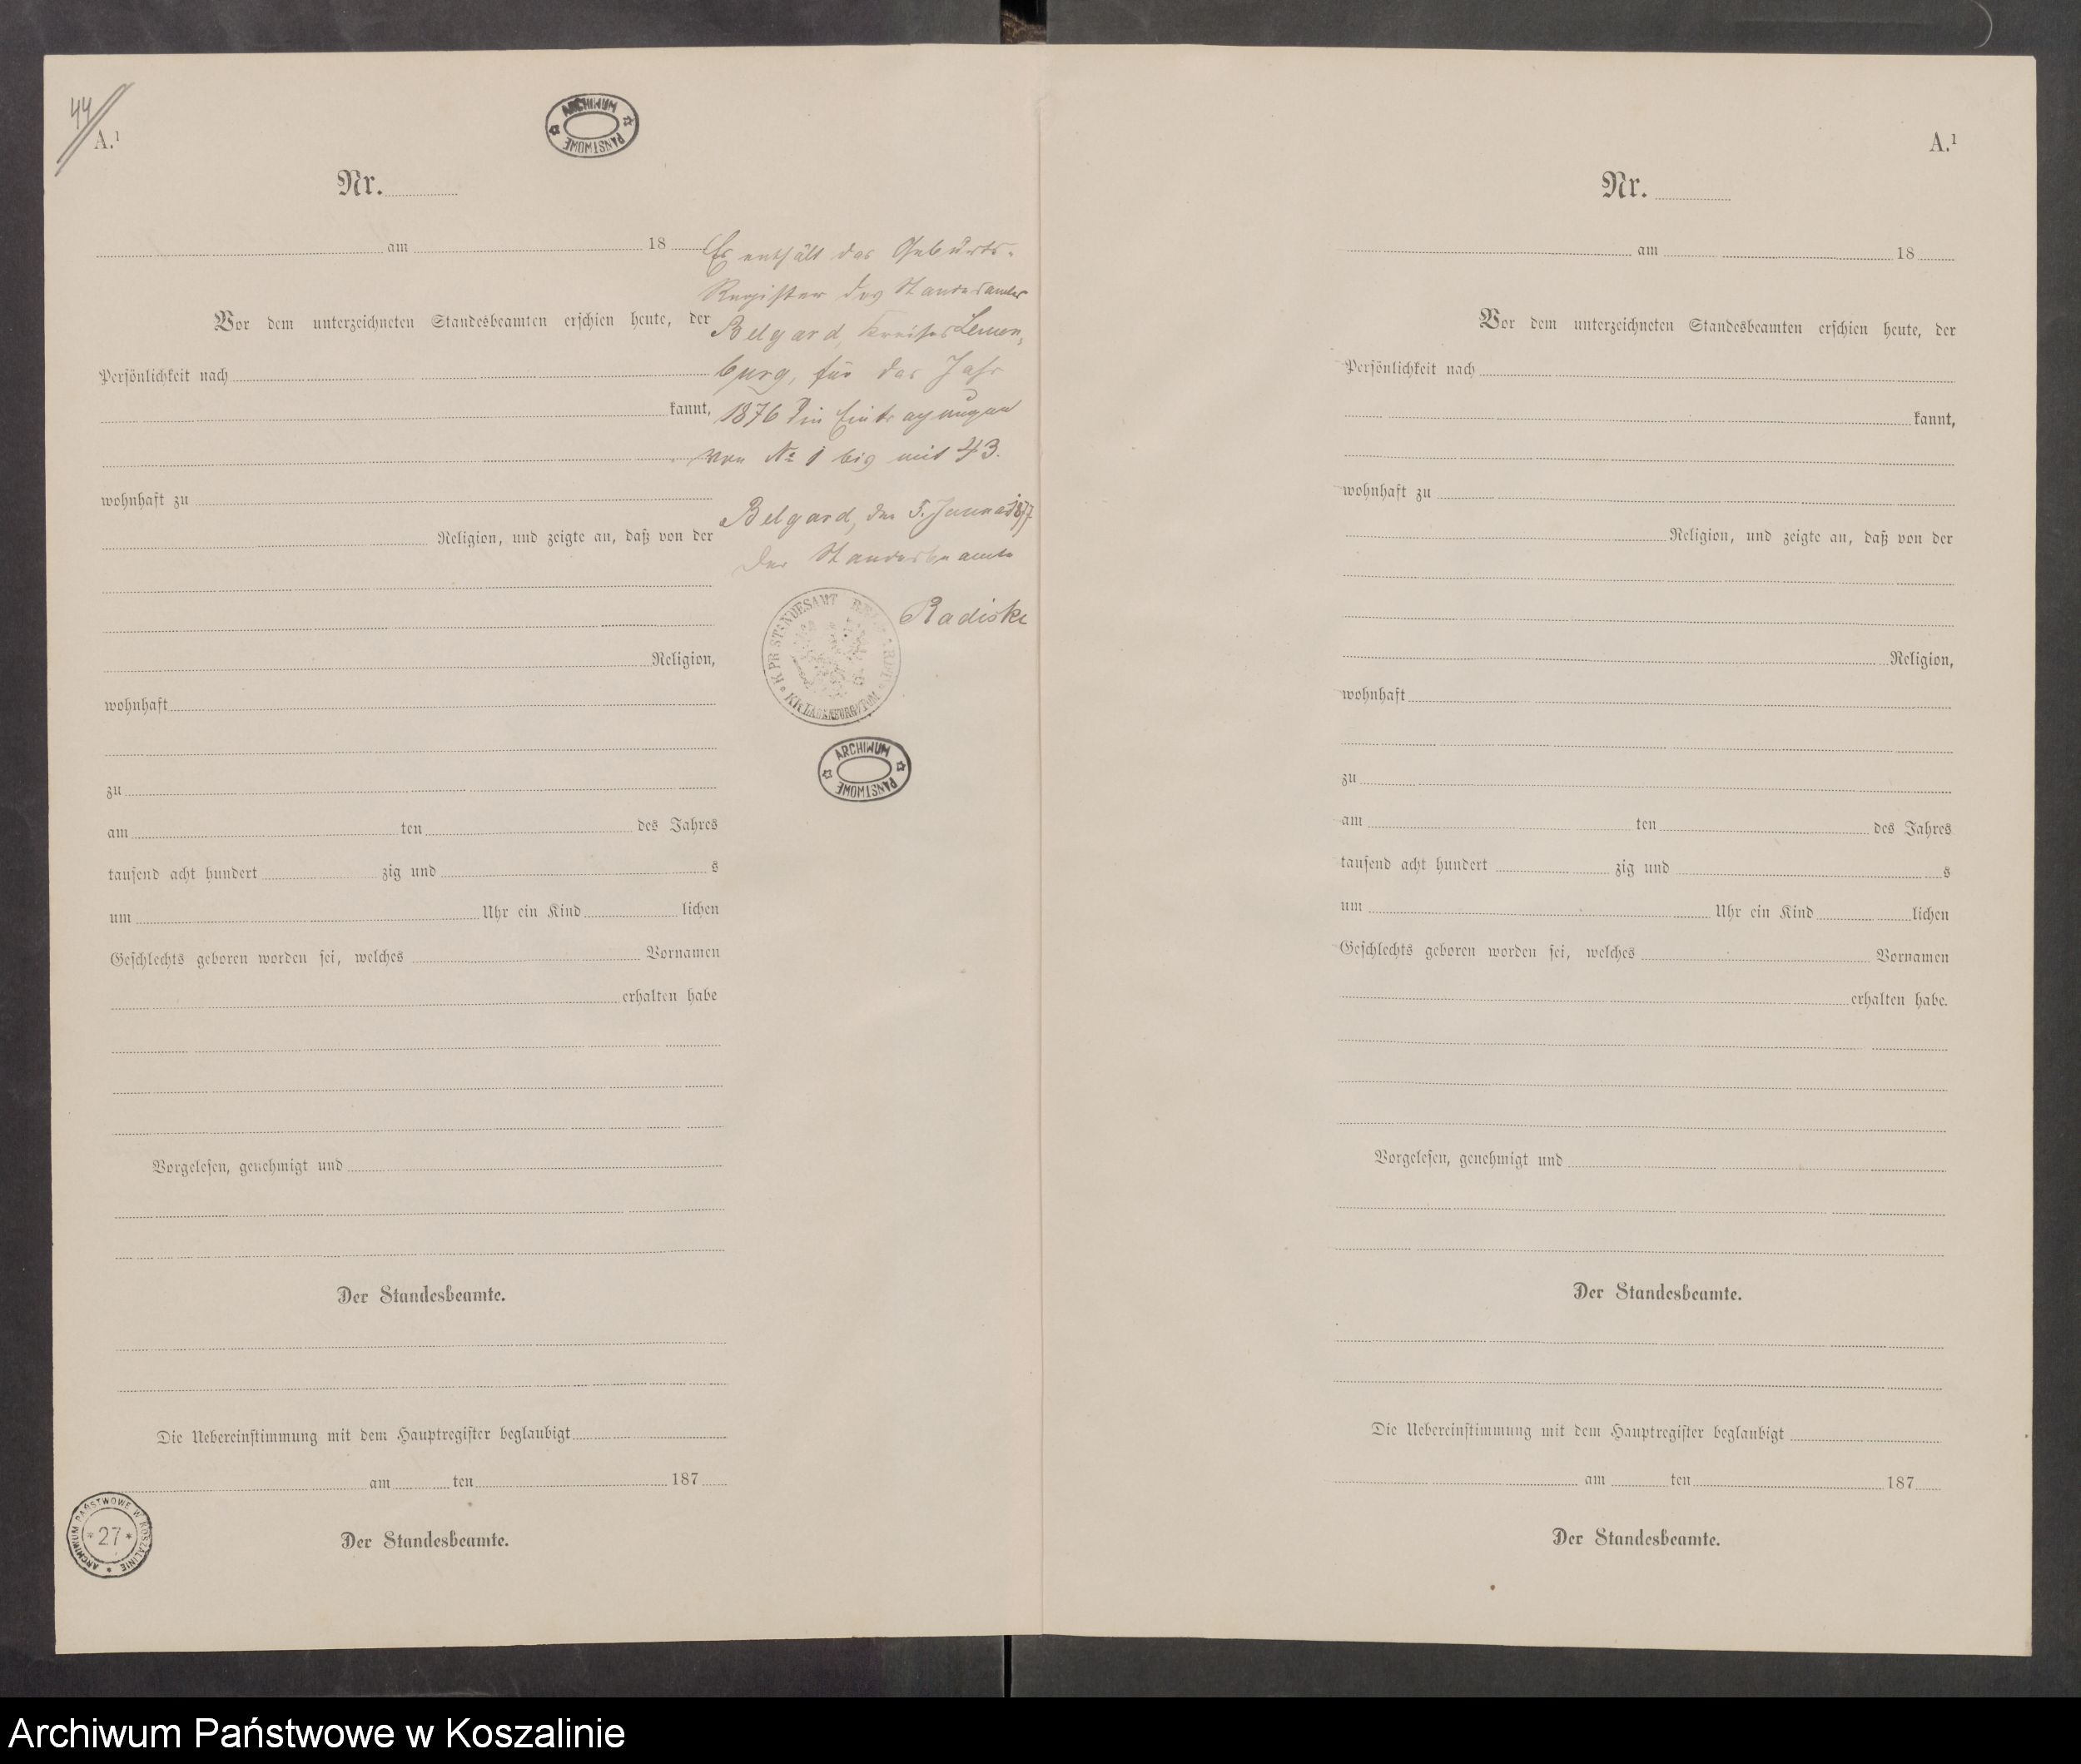 44
A.¹
ARCHIWUM PAŃSTWOWE
Nr.
am 18
Vor dem unterzeichneten Standesbeamten erschien heute, der
Persönlichkeit nach
kannt,
wohnhaft zu
Religion, und zeigte an, daß von der
Religion,
wohnhaft
zu
am ten des Jahres
tausend acht hundert zig und s
um Uhr ein Kind lichen
Geschlechts geboren worden sei, welches Vornamen
erhalten habe
Vorgelesen, genehmigt und
Der Standesbeamte.
Die Uebereinstimmung mit dem Hauptregister beglaubigt
am ten 187
Der Standesbeamte.
ARCHIWUM PAŃSTWOWE W KOSZALINIE
27
Es enthält das Geburts-
Register des Standesamtes
Belgard, Kreises Lauen-
burg, für das Jahr
1876 die Eintragungen
von No 1 bis mit 43.
Belgard, den 5. Januar 1877
Der Standesbeamte
Radiske
K. PR. STANDESAMT
ARCHIWUM PAŃSTWOWE
A.¹
Nr.
am 18
Vor dem unterzeichneten Standesbeamten erschien heute, der
Persönlichkeit nach
kannt,
wohnhaft zu
Religion, und zeigte an, daß von der
Religion,
wohnhaft
zu
am ten des Jahres
tausend acht hundert zig und s
um Uhr ein Kind lichen
Geschlechts geboren worden sei, welches Vornamen
erhalten habe.
Vorgelesen, genehmigt und
Der Standesbeamte.
Die Uebereinstimmung mit dem Hauptregister beglaubigt
am ten 187
Der Standesbeamte.
Archiwum Państwowe w Koszalinie